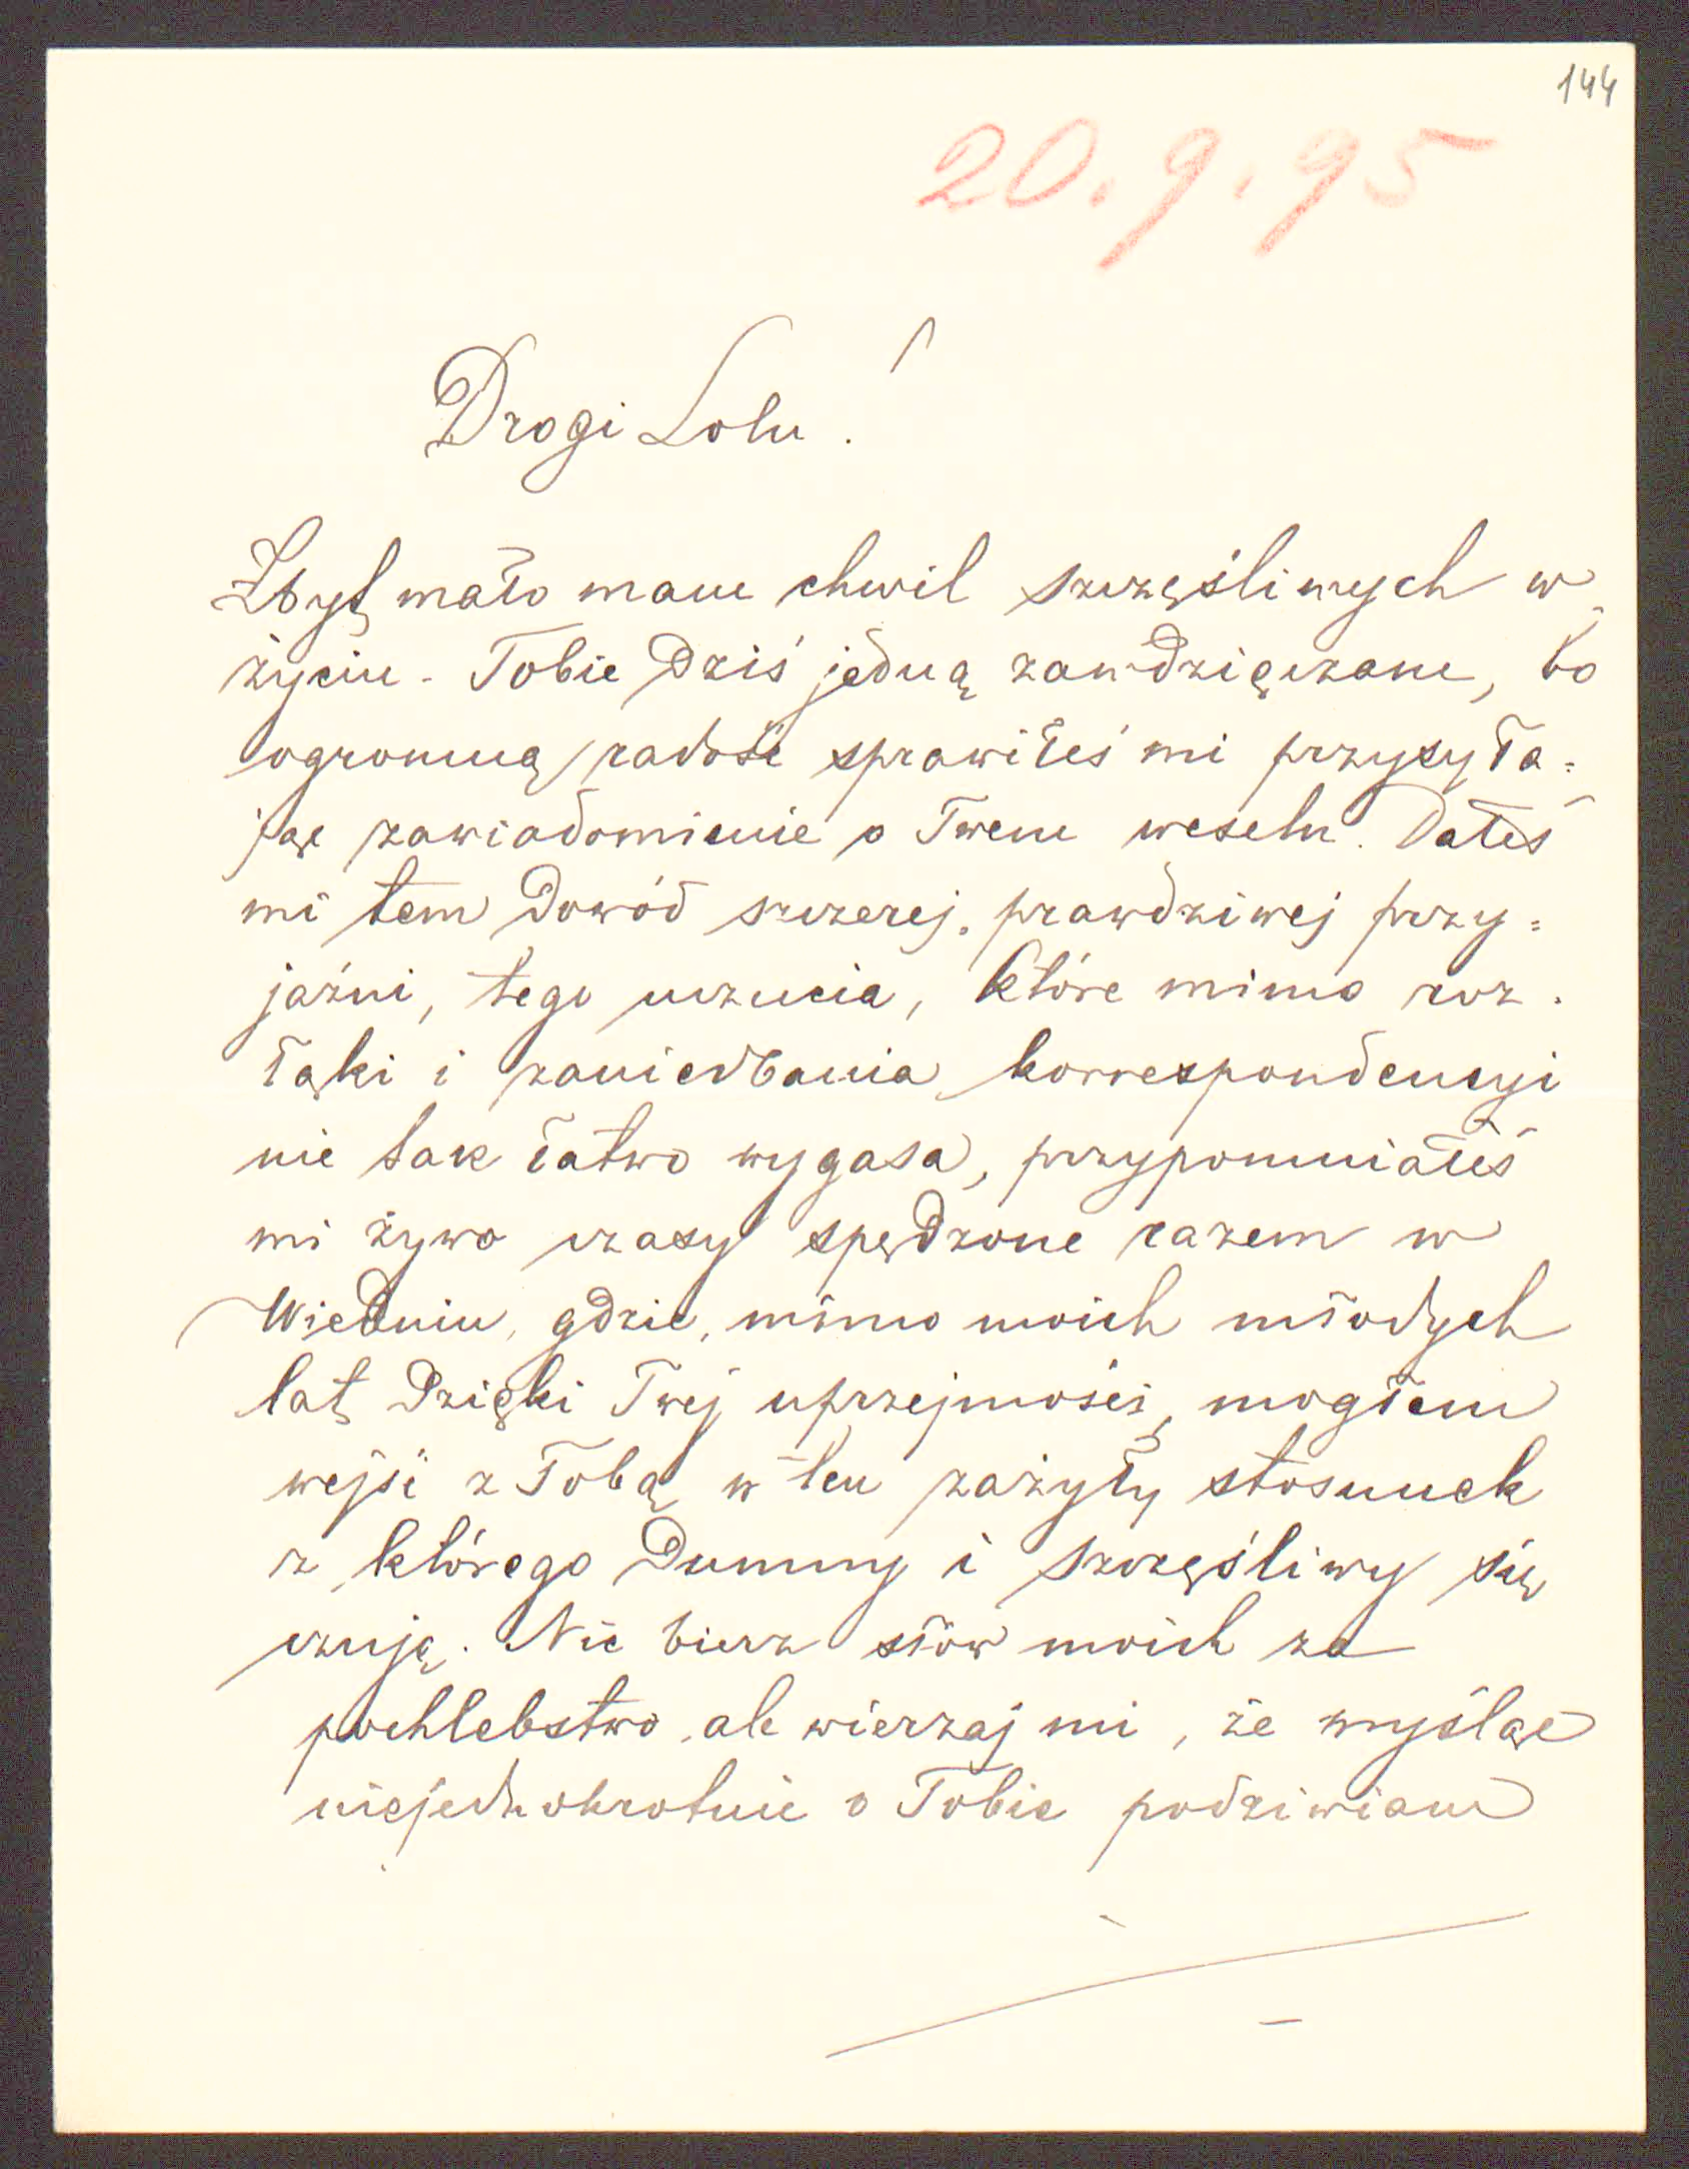 144
20.9.95
Drogi Lolu!
Zbyt mało mam chwil szczęśliwych w
życiu. Tobie dziś jedną zawdzięczam, bo
ogromną radość sprawiłeś mi przysyła=
jąc zawiadomienie o Twem weselu. Dałeś
mi tem dowód szczerej, prawdziwej przy=
jaźni, tego uczucia, które mimo roz.
łąki i zaniedbania korrespondencyi
nie tak łatwo wygasa, przypomniałeś
mi żywo czasy spędzone razem w
Wiedniu, gdzie, mimo moich młodych
lat dzięki Twej uprzejmości, mogłem
wejść z Tobą w ten zażyły stosunek
z którego dumny i szczęśliwy się
czuję. Nie bierz słów moich za
pochlebstwo, ale wierzaj mi, że myśląc
niejednokrotnie o Tobie podziwiam